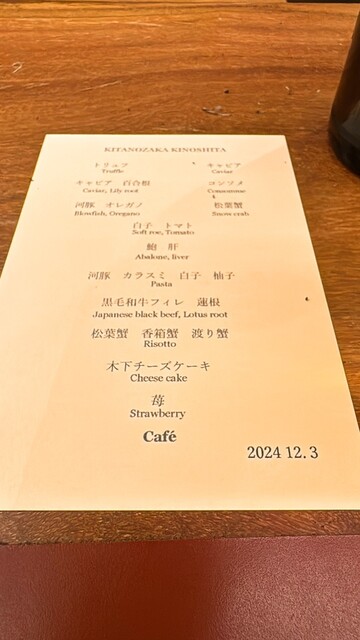 KITANOZAKA KINOSHITA
トリュフ キャビア
Truffle Caviar
キャビア 百合根 コンソメ
Caviar, Lily root Consomme
河豚 オレガノ 松葉蟹
Blowfish, Oregano Snow crab
白子 トマト
Soft roe, Tomato
鮑 肝
Abalone, liver
河豚 カラスミ 白子 柚子
Pasta
黒毛和牛フィレ 蓮根
Japanese black beef, Lotus root
松葉蟹 香箱蟹 渡り蟹
Risotto
木下チーズケーキ
Cheese cake
苺
Strawberry
Café
2024 12. 3